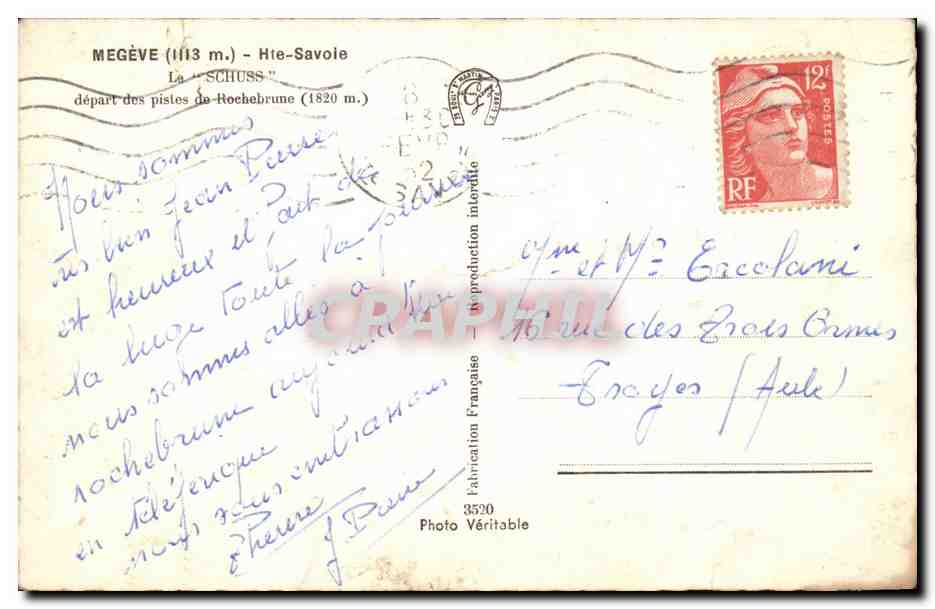 MEGÈVE (1113 m.) - Hte-Savoie
Le "SCHUSS"
départ des pistes de Rochebrune (1820 m.)
Nous sommes
très bien Jean Pierre
est heureux il fait de
la luge toute la journée
nous sommes allés à
rochebrune aujourd'hui
en téléférique
nous vous embrassons
Therese
J Pierre
Fabrication Française - Reproduction interdite
3520
Photo Véritable
12F
POSTES
RF
Mme et Mr Ercolani
16 rue des Trois Ormes
Troyes (Aube)
CRAPHIL